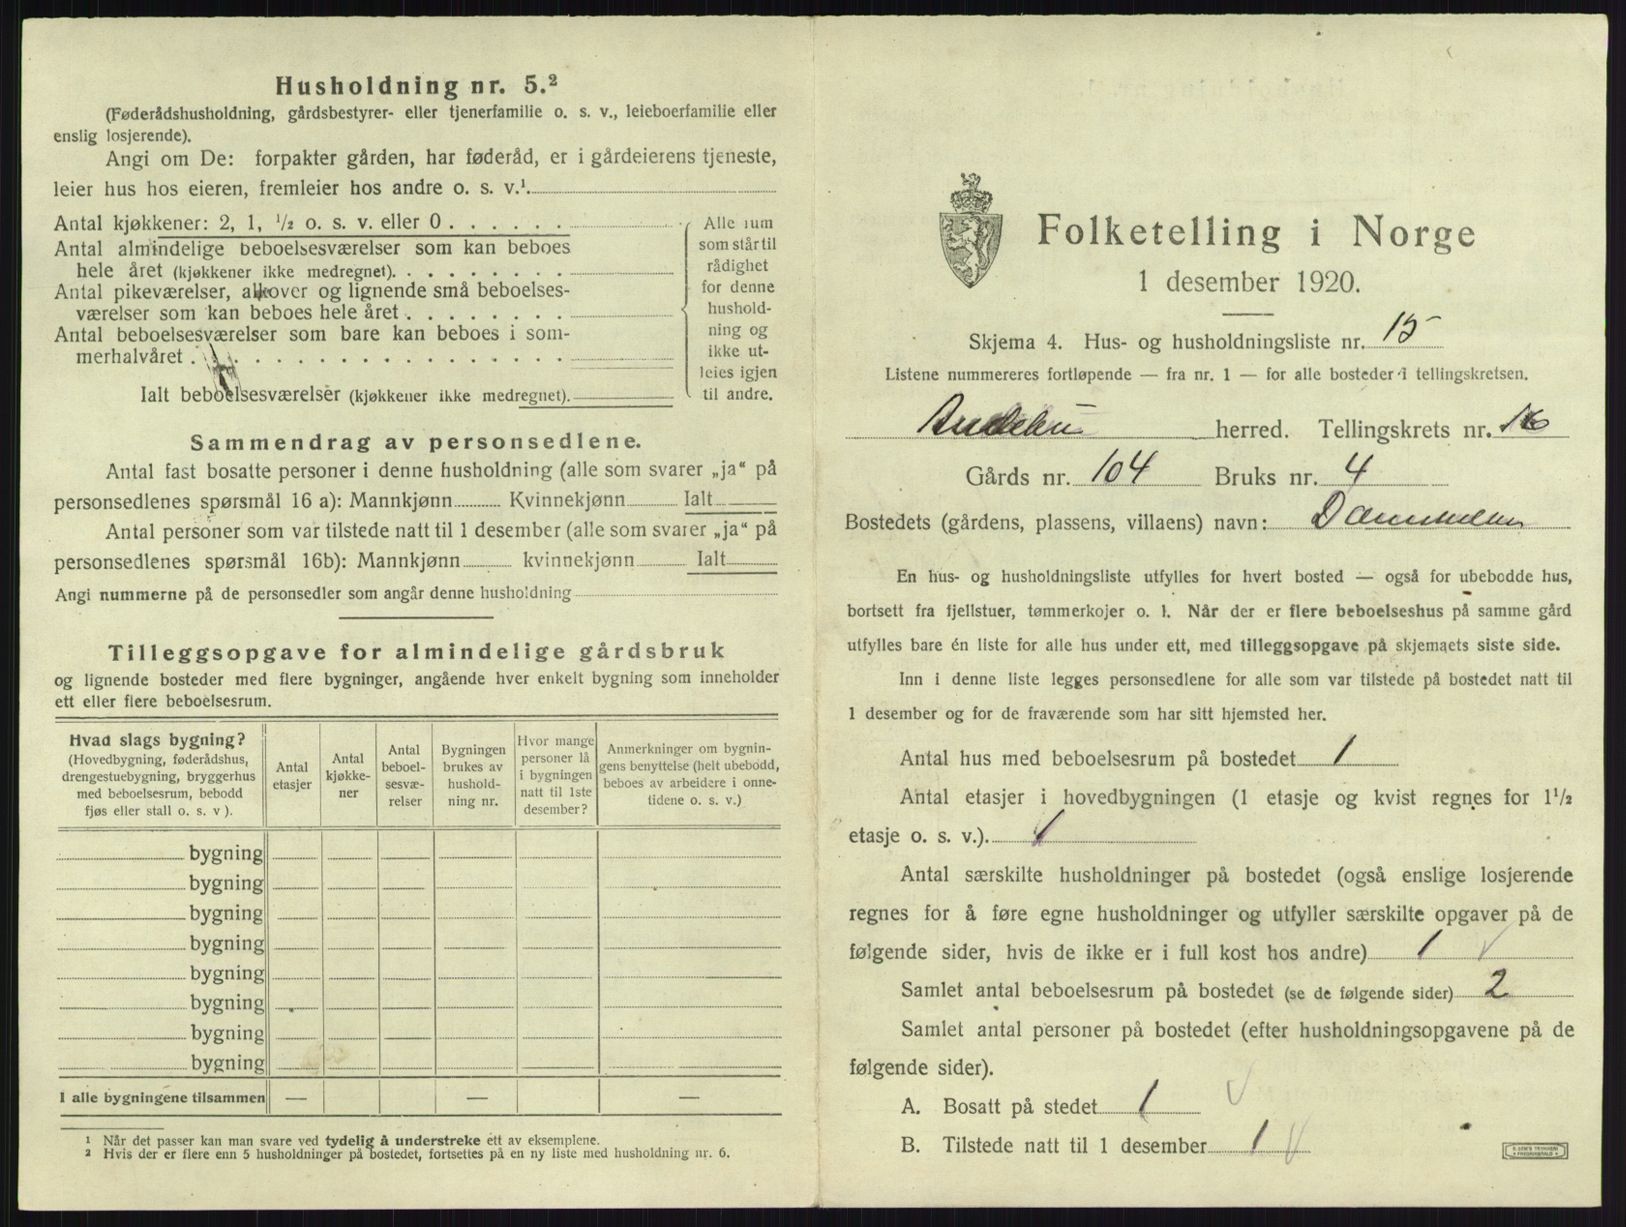 Husholdning nr. 5.²
(Føderådshusholdning, gårdsbestyrer- eller tjenerfamilie o. s. v., leieboerfamilie eller
enslig losjerende).
Angi om De: forpakter gården, har føderåd, er i gårdeierens tjeneste,
leier hus hos eieren, fremleier hos andre o. s. v.¹
Antal kjøkkener: 2, 1, ½ o. s. v. eller 0
Antal almindelige beboelsesværelser som kan beboes
hele året (kjøkkener ikke medregnet).
Antal pikeværelser, alkover og lignende små beboelses-
værelser som kan beboes hele året
Antal beboelsesværelser som bare kan beboes i som-
merhalvåret
Ialt beboelsesværelser (kjøkkener ikke medregnet).
Alle rum
som står til
rådighet
for denne
hushold-
ning og
ikke ut-
leies igjen
til andre.
Sammendrag av personsedlene.
Antal fast bosatte personer i denne husholdning (alle som svarer „ja“ på
personsedlenes spørsmål 16 a): Mannkjønn Kvinnekjønn Ialt
Antal personer som var tilstede natt til 1 desember (alle som svarer „ja“ på
personsedlenes spørsmål 16b): Mannkjønn kvinnekjønn Ialt
Angi nummerne på de personsedler som angår denne husholdning
Tilleggsopgave for almindelige gårdsbruk
og lignende bosteder med flere bygninger, angående hver enkelt bygning som inneholder
ett eller flere beboelsesrum.
Hvad slags bygning?
(Hovedbygning, føderådshus,
drengestuebygning, bryggerhus
med beboelsesrum, bebodd
fjøs eller stall o. s. v ).
Antal
etasjer
Antal
kjøkke-
ner
Antal
beboel-
sesvæ-
relser
Bygningen
brukes av
hushold-
ning nr.
Hvor mange
personer lå
i bygningen
natt til 1ste
desember?
Anmerkninger om bygnin-
gens benyttelse (helt ubebodd,
beboes av arbeidere i onne-
tidene o. s. v.)
bygning
bygning
bygning
bygning
bygning
bygning
bygning
bygning
I alle bygningene tilsammen — — —
¹ Når det passer kan man svare ved tydelig å understreke ett av eksemplene.
² Hvis der er flere enn 5 husholdninger på bostedet, fortsettes på en ny liste med husholdning nr. 6.
Folketelling i Norge
1 desember 1920.
Skjema 4. Hus- og husholdningsliste nr. 15
Listene nummereres fortløpende — fra nr. 1 — for alle bosteder i tellingskretsen.
Andebu herred. Tellingskrets nr.
Gårds nr. 104 Bruks nr. 4
Bostedets (gårdens, plassens, villaens) navn:
En hus- og husholdningsliste utfylles for hvert bosted — også for ubebodde hus,
bortsett fra fjellstuer, tømmerkojer o. l. Når der er flere beboelseshus på samme gård
utfylles bare én liste for alle hus under ett, med tilleggsopgave på skjemaets siste side.
Inn i denne liste legges personsedlene for alle som var tilstede på bostedet natt til
1 desember og for de fraværende som har sitt hjemsted her.
Antal hus med beboelsesrum på bostedet 1
Antal etasjer i hovedbygningen (1 etasje og kvist regnes for 1½
etasje o. s. v.). 1
Antal særskilte husholdninger på bostedet (også enslige losjerende
regnes for å føre egne husholdninger og utfyller særskilte opgaver på de
følgende sider, hvis de ikke er i full kost hos andre) 1
Samlet antal beboelsesrum på bostedet (se de følgende sider) 2
Samlet antal personer på bostedet (efter husholdningsopgavene på de
følgende sider).
A. Bosatt på stedet 1
B. Tilstede natt til 1 desember 1